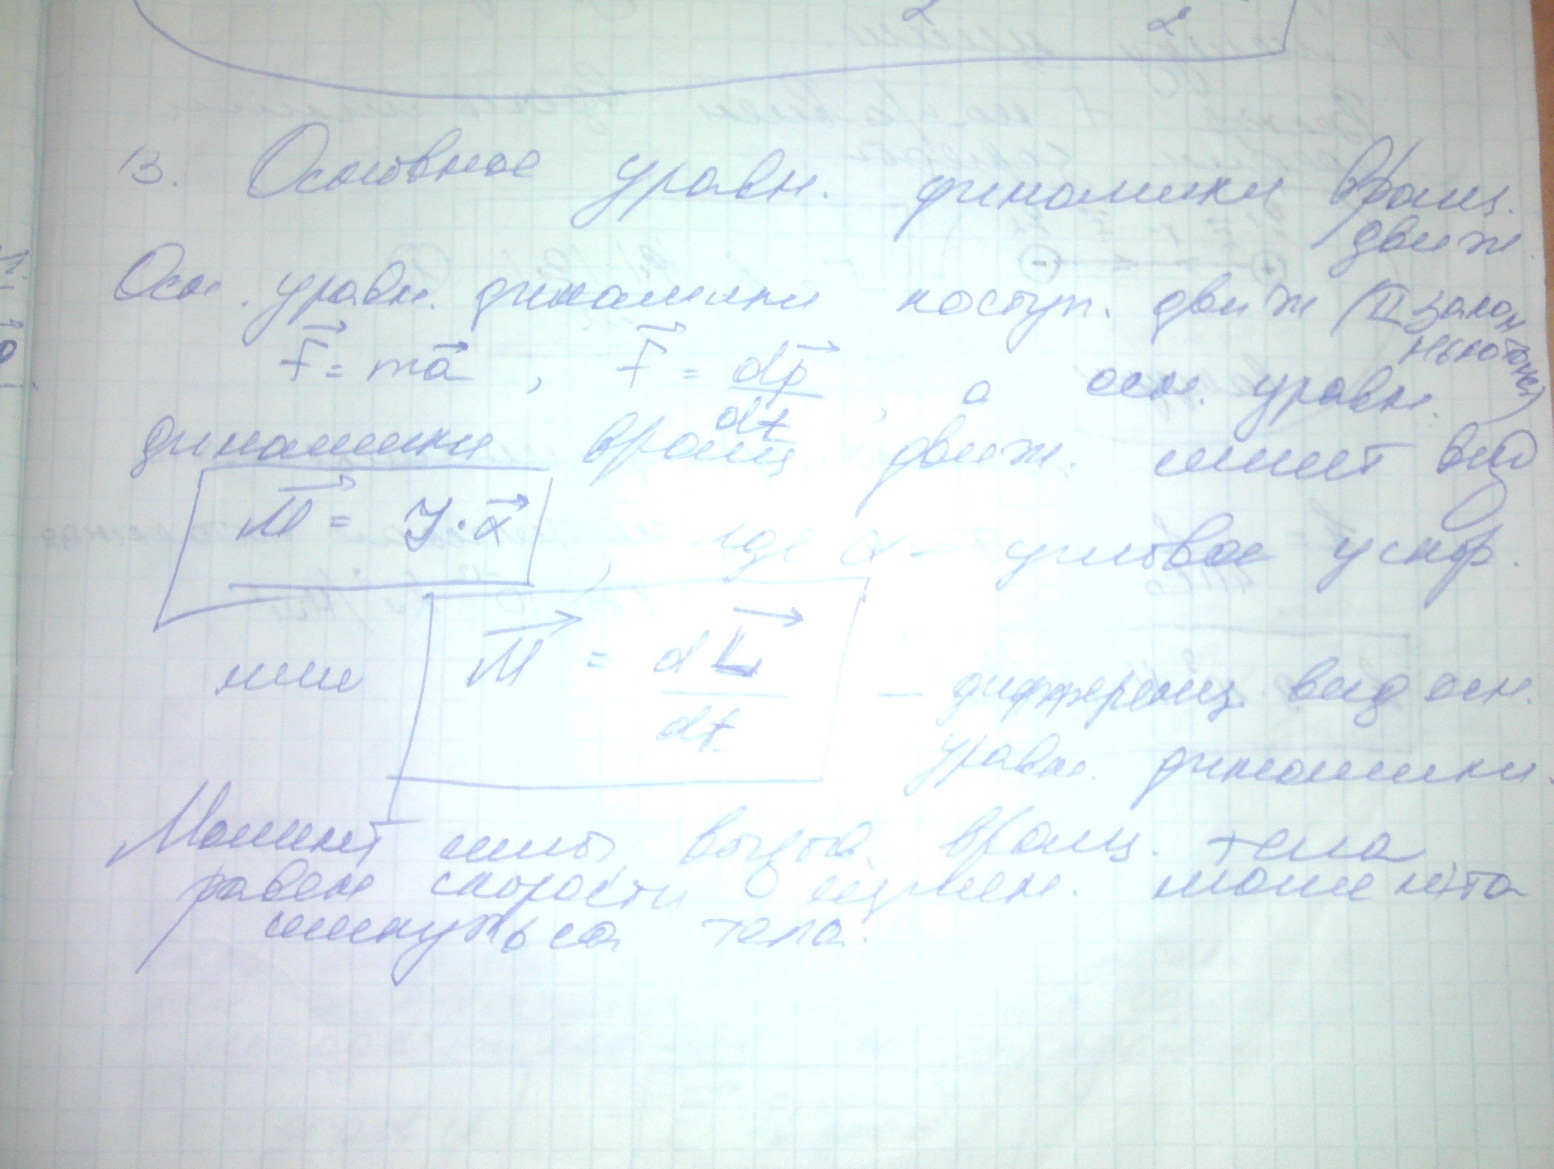 13. Основное уравн. динамики вращ.
движ.
Осн. уравн. динамики поступ. движ (II закон
Ньютона)
F⃗ = ma⃗, F⃗ = dp⃗/dt, а осн. уравн.
динамики вращ. движ. имеет вид
M⃗ = J·α⃗, где α – угловое ускор.
или M⃗ = dL⃗/dt – дифференц. вид осн.
уравн. динамики.
Момент силы вращ. тела
равен скорости измен. момента
импульса тела.